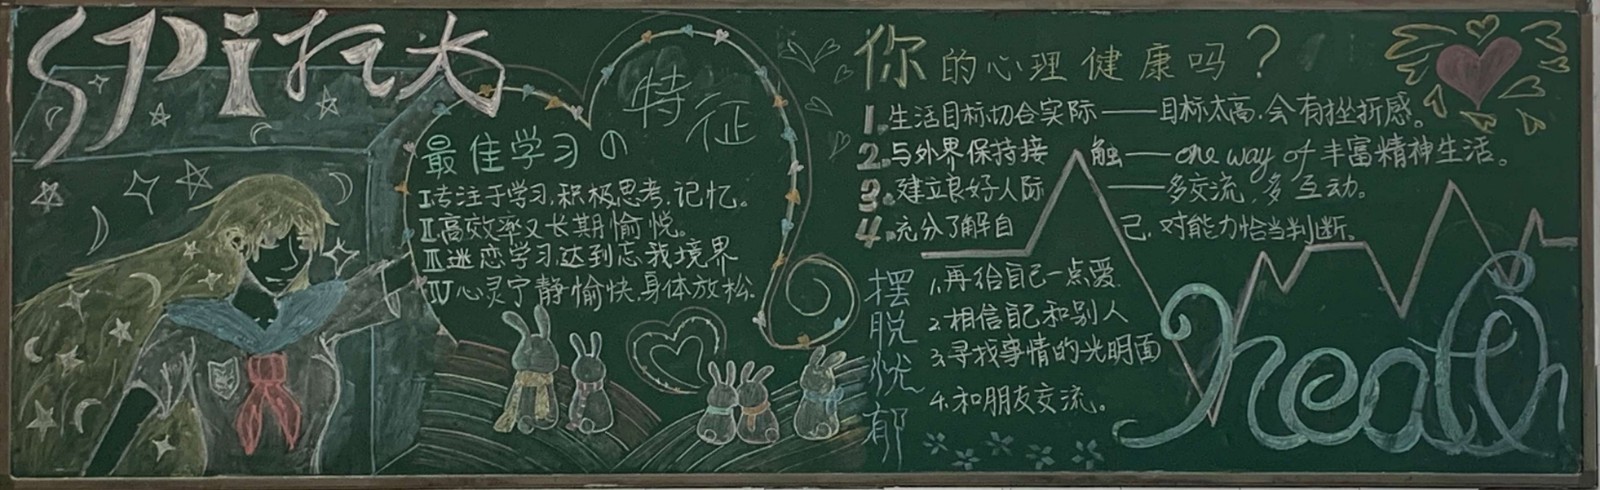 SPi拉大
特征
最佳学习の
I.专注于学习,积极思考,记忆。
II.高效率又长期愉悦。
III迷恋学习达到忘我境界
IV心灵宁静愉快,身体放松.
你的心理健康吗?
1.生活目标切合实际——目标太高,会有挫折感。
2.与外界保持接触——one way of 丰富精神生活。
3.建立良好人际——多交流,多互动。
4.充分了解自己,对能力恰当判断。
摆脱忧郁
1.再给自己一点爱.
2.相信自己和别人
3.寻找事情的光明面
4.和朋友交流。
health